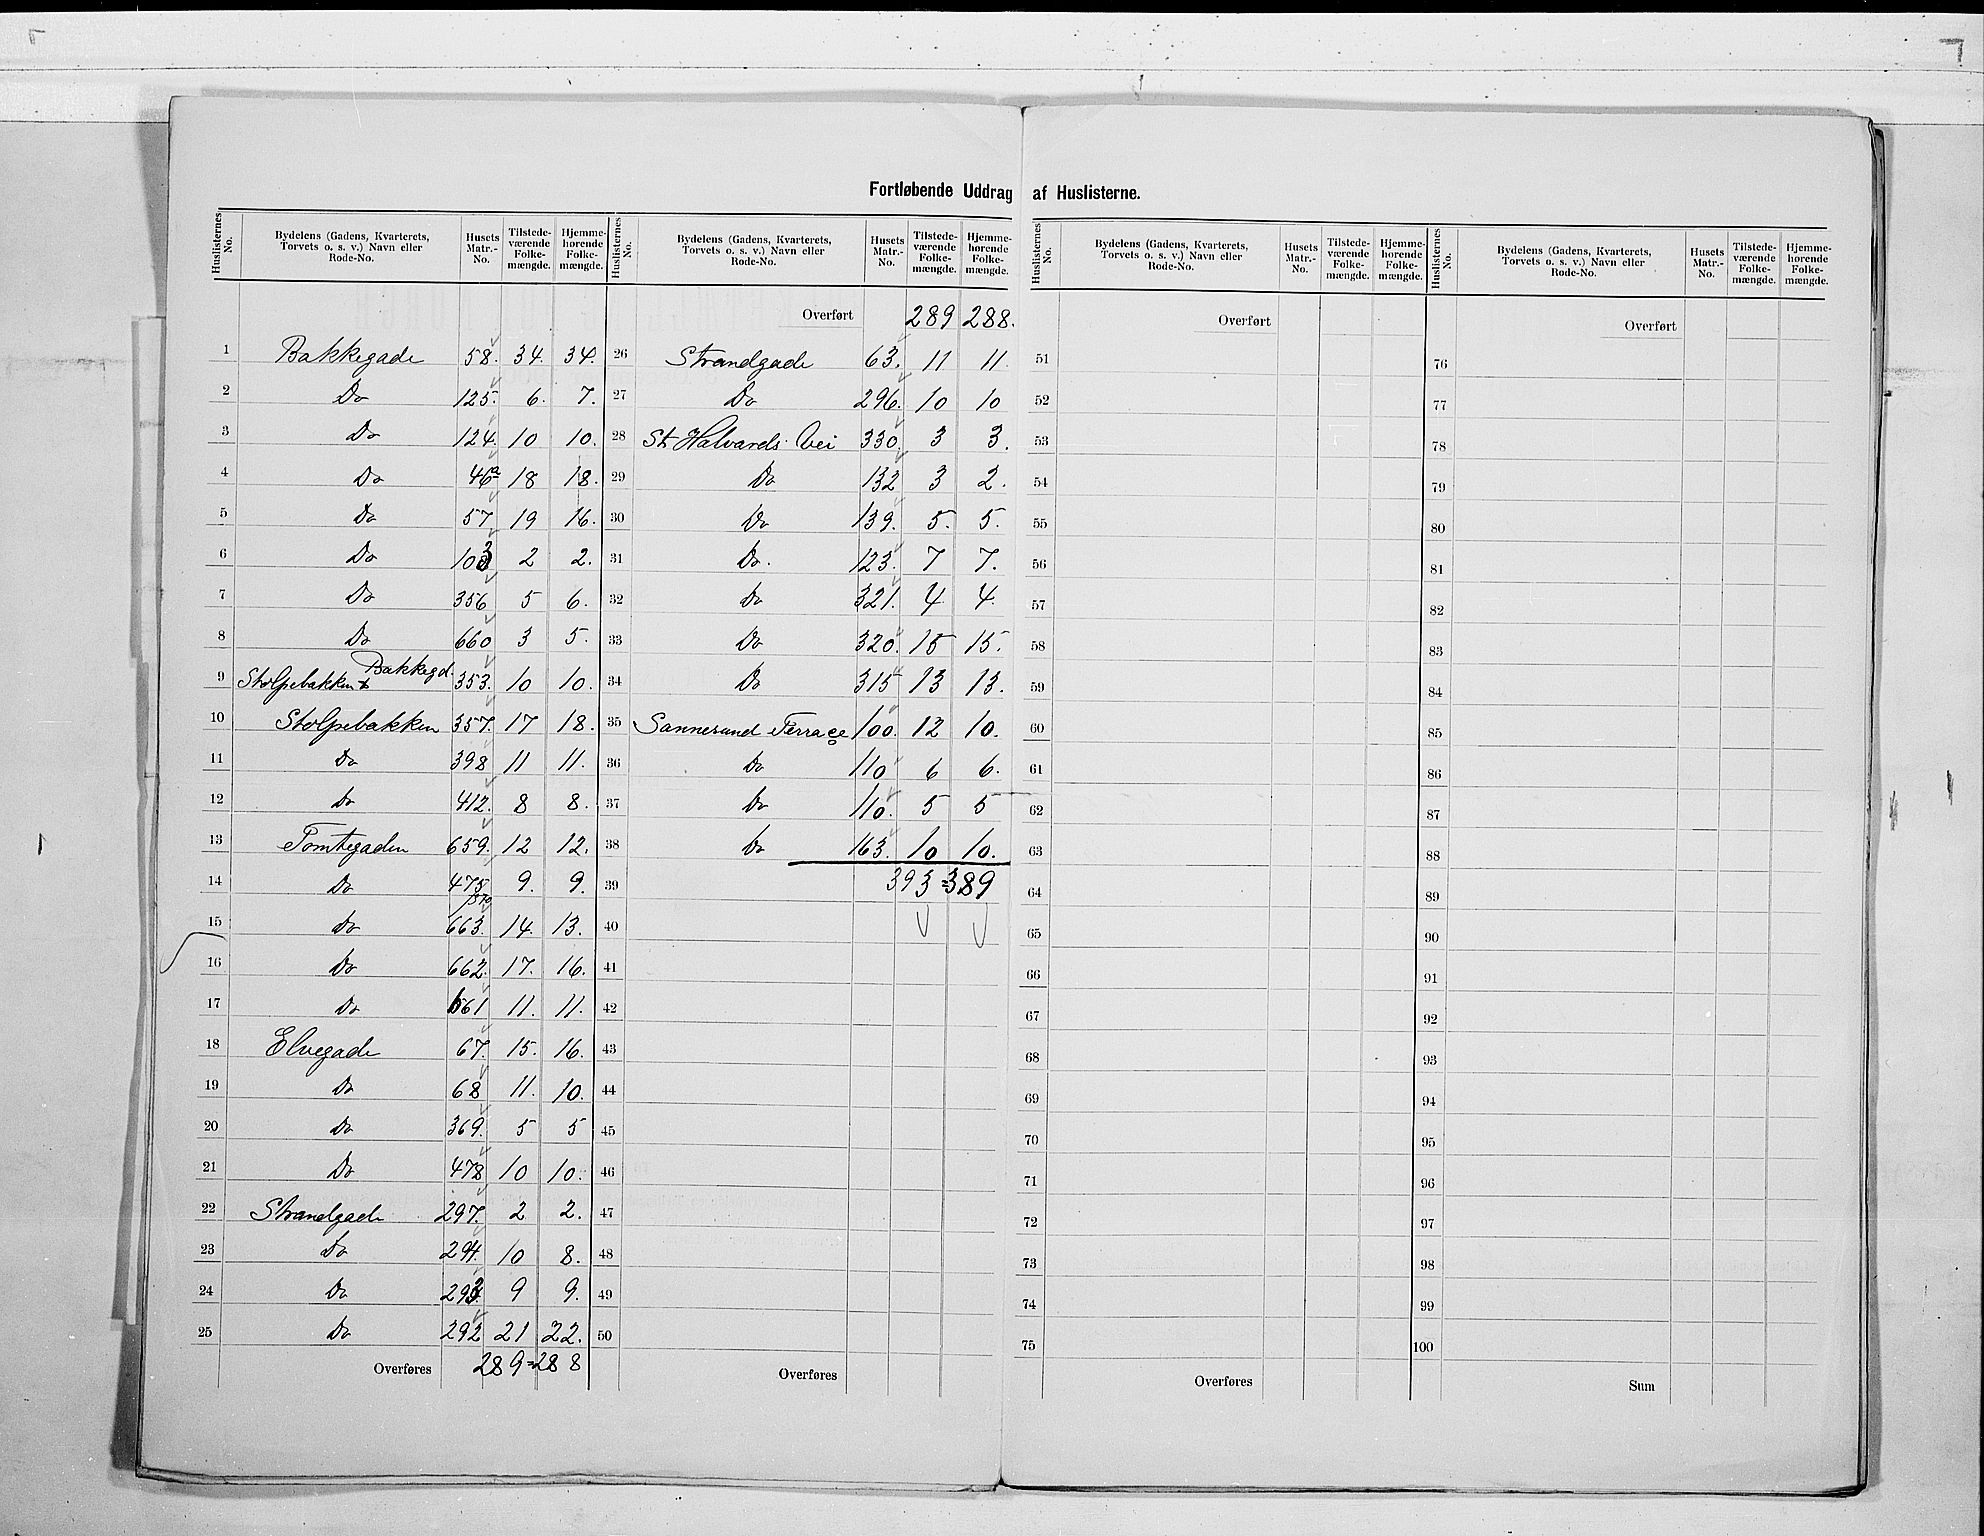 Fortløbende Uddrag af Huslisterne.
Huslisternes No. Bydelens (Gadens, Kvarterets, Torvets o. s. v.) Navn eller Rode-No. Husets Matr.-No. Tilstedeværende Folkemængde. Hjemmehørende Folkemængde.
1 Bakkegade 58. 34. 34.
2 Do 125. 6. 7.
3 Do 124. 10 10.
4 Do 46a 18 18.
5 Do 57 19 16.
6 Do 103 2 2.
7 Do 356 5 6.
8 Do 660 3 5.
9 Stolpebakken & Bakkegd. 353. 10 10.
10 Stolpebakken 357. 17 18.
11 Do 398 11 11.
12 Do 412. 8 8.
13 Tomtegaden 659. 12 12.
14 Do 475/870 9. 9.
15 Do 663. 14. 13.
16 Do 662. 17. 16.
17 Do 661 11. 11.
18 Elvegade 67. 15. 16.
19 Do 68 11. 10.
20 Do 369. 5 5
21 Do 478 10 10.
22 Strandgade 297. 2 2.
23 Do 294. 10 8.
24 Do 293. 9 9.
25 Do 292 21 22.
Overføres 289=288
Huslisternes No. Bydelens (Gadens, Kvarterets, Torvets o. s. v.) Navn eller Rode-No. Husets Matr.-No. Tilstedeværende Folkemængde. Hjemmehørende Folkemængde.
Overført 289 288.
26 Strandgade 63. 11 11.
27 Do 296. 10 10
28 St. Halvards Vei 330. 3 3.
29 Do 132 3 2.
30 Do 139. 5. 5.
31 Do. 123. 7 7.
32 Do 321. 4 4.
33 Do 320. 15 15.
34 Do 315 13 13.
35 Sannesund Terrace 100. 12 10.
36 Do 110 6 6.
37 Do 110. 5 5
38 Do 163. 10 10.
39 393=389
40
41
42
43
44
45
46
47
48
49
50
Overføres
Huslisternes No. Bydelens (Gadens, Kvarterets, Torvets o. s. v.) Navn eller Rode-No. Husets Matr.-No. Tilstedeværende Folkemængde. Hjemmehørende Folkemængde.
Overført
51
52
53
54
55
56
57
58
59
60
61
62
63
64
65
66
67
68
69
70
71
72
73
74
75
Overføres
Huslisternes No. Bydelens (Gadens, Kvarterets, Torvets o. s. v.) Navn eller Rode-No. Husets Matr.-No. Tilstedeværende Folkemængde. Hjemmehørende Folkemængde.
Overført
76
77
78
79
80
81
82
83
84
85
86
87
88
89
90
91
92
93
94
95
96
97
98
99
100
Sum